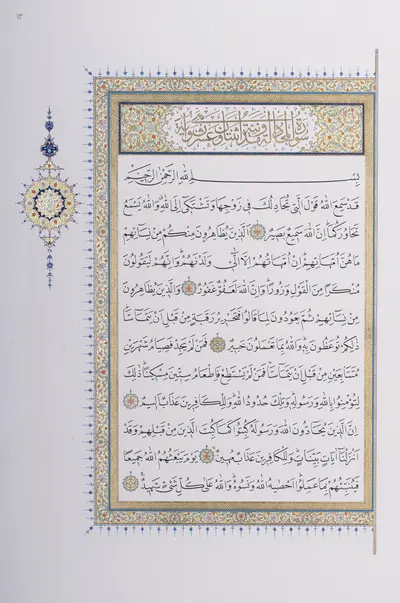 ١٣
سورة المجادلة مدنية وهي اثنتان وعشرون آية
بسم الله الرحمن الرحيم
قد سمع الله قول التي تجادلك في زوجها وتشتكي إلى الله والله يسمع
تحاوركما إن الله سميع بصير الذين يظاهرون منكم من نسائهم
ما هن أمهاتهم إن أمهاتهم إلا اللائي ولدنهم وإنهم ليقولون
منكرا من القول وزورا وإن الله لعفو غفور والذين يظاهرون
من نسائهم ثم يعودون لما قالوا فتحرير رقبة من قبل أن يتماسا
ذلكم توعظون به والله بما تعملون خبير فمن لم يجد فصيام شهرين
متتابعين من قبل أن يتماسا فمن لم يستطع فإطعام ستين مسكينا ذلك
لتؤمنوا بالله ورسوله وتلك حدود الله وللكافرين عذاب أليم
إن الذين يحادون الله ورسوله كبتوا كما كبت الذين من قبلهم وقد
أنزلنا آيات بينات وللكافرين عذاب مهين يوم يبعثهم الله جميعا
فينبئهم بما عملوا أحصاه الله ونسوه والله على كل شيء شهيد